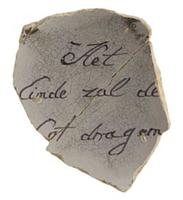 Het
Einde zal de
Lot dragen